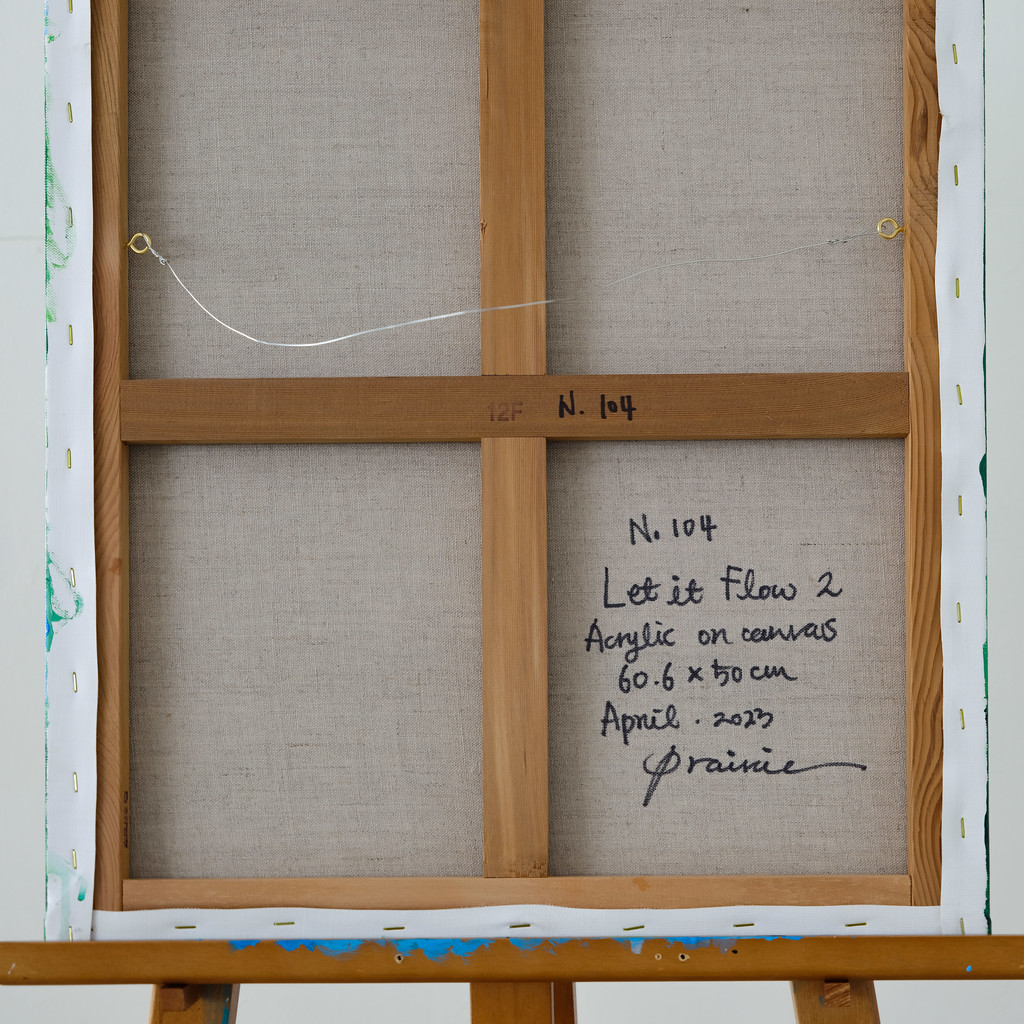 12F N. 104
N. 104
Let it Flow 2
Acrylic on canvas
60.6 x 50 cm
April . 2023
prairie